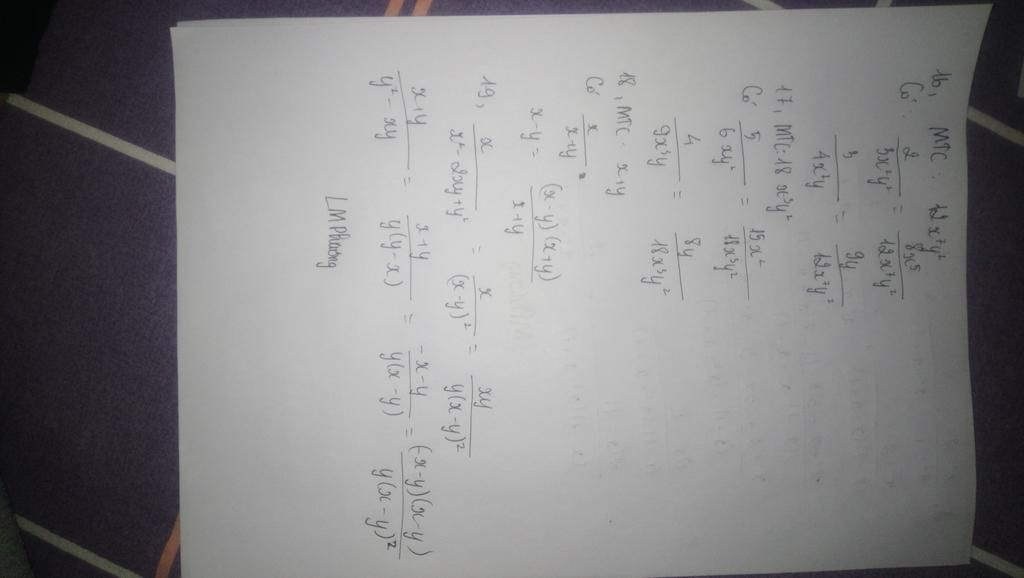 16, MTC: 12x⁷y²
Có: 2/(3x²y²) = 8x⁵/(12x⁷y²)
3/(4x⁷y) = 9y/(12x⁷y²)
17, MTC: 18x³y²
Có: 5/(6xy²) = 15x²/(18x³y²)
4/(9x³y) = 8y/(18x³y²)
18, MTC: x+y
Có x/(x+y) =
x-y = (x-y)(x+y)/(x+y)
19, x/(x²-2xy+y²) = x/(x-y)² = xy/(y(x-y)²)
(x+y)/(y²-xy) = (x+y)/(y(y-x)) = (-x-y)/(y(x-y)) = (-x-y)(x-y)/(y(x-y)²)